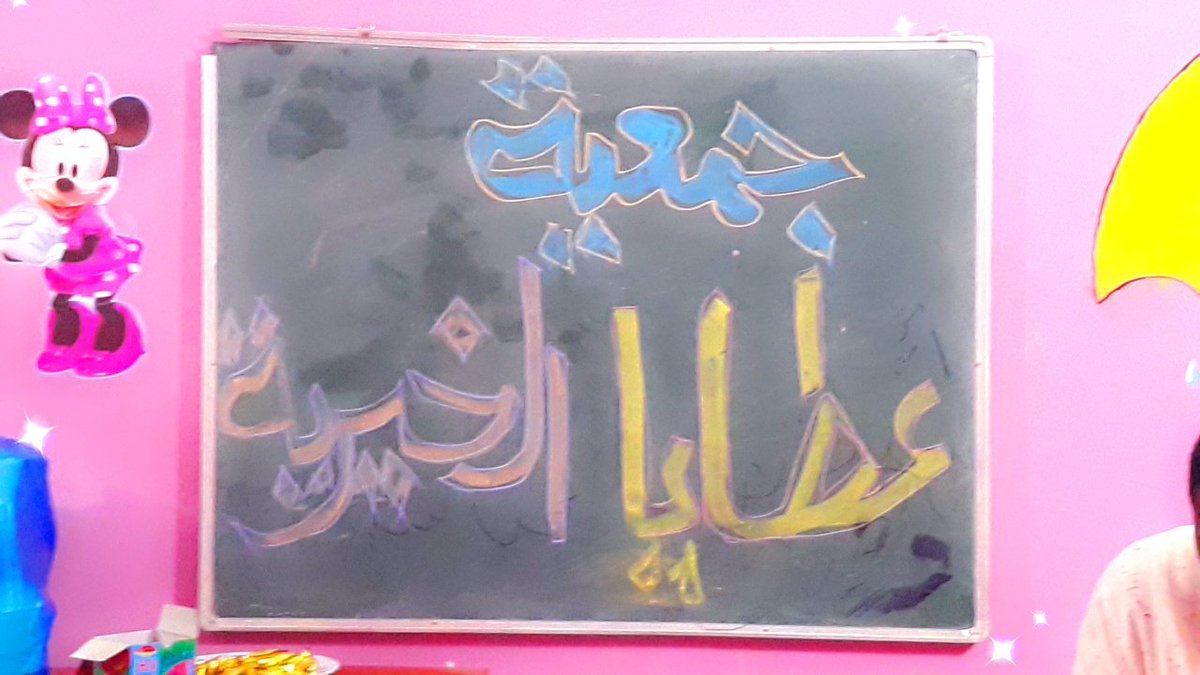 جمعية
عطايا الخيرية